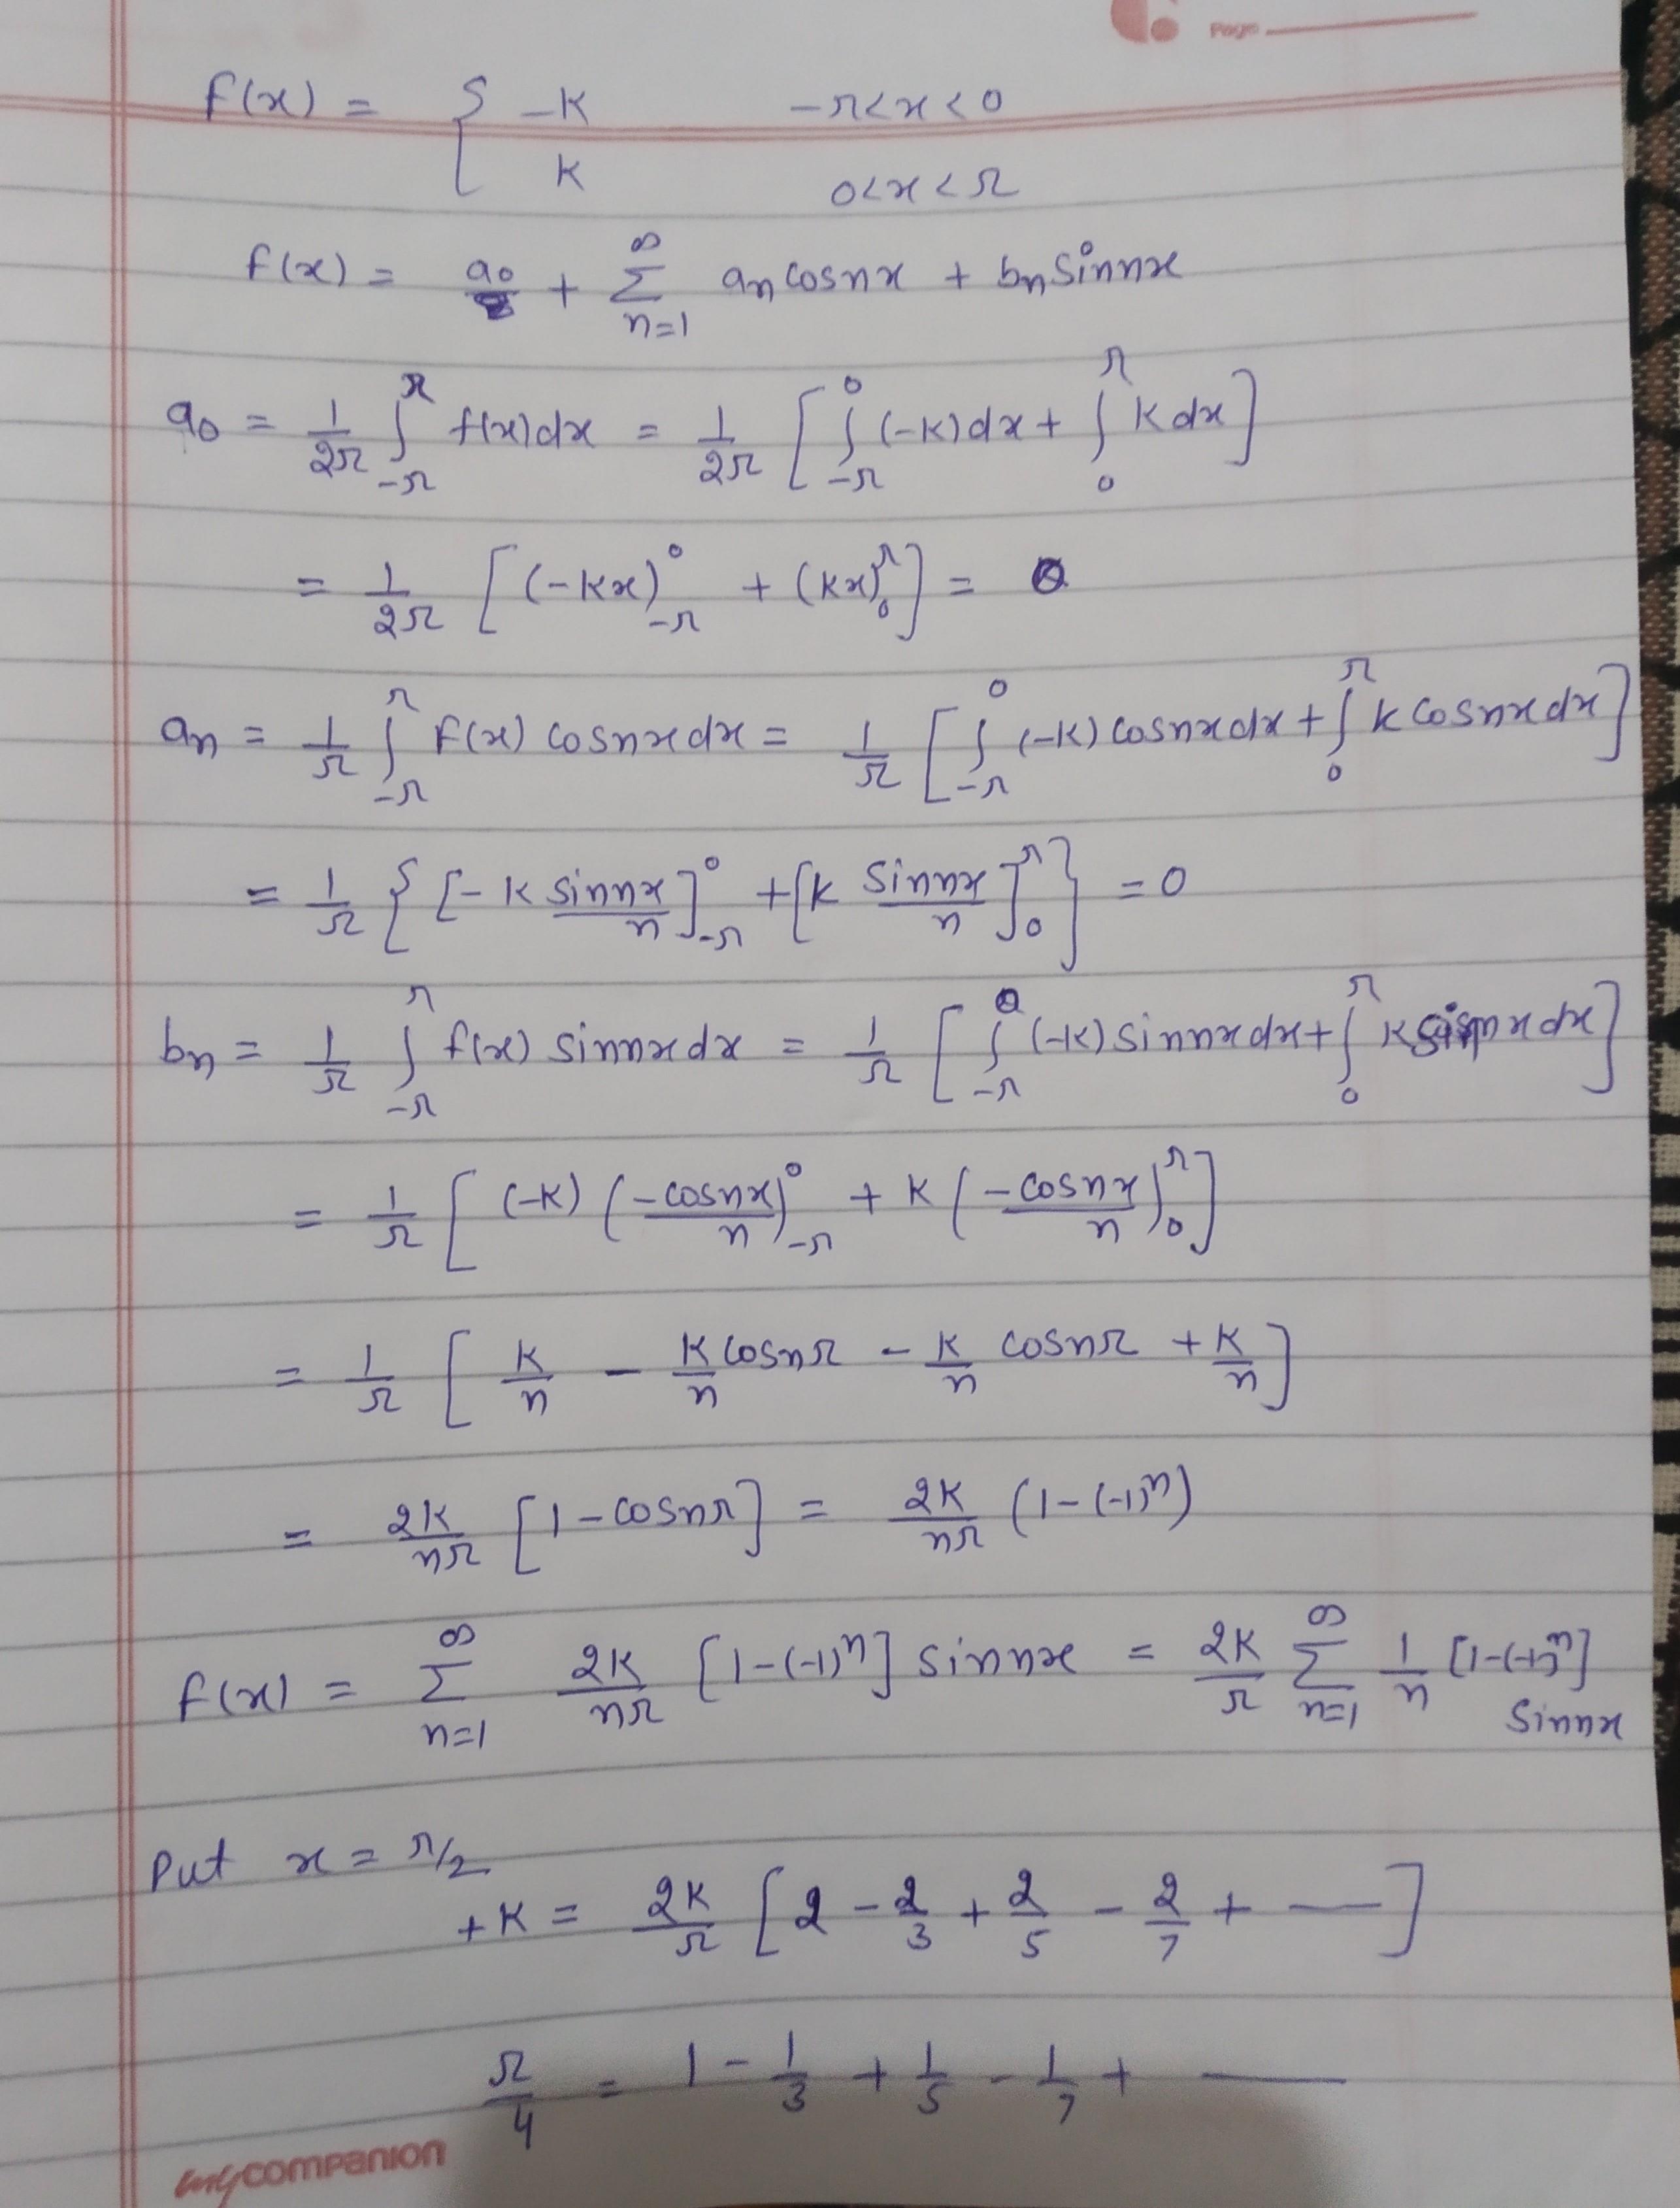 Page
f(x) = { -K    -π<x<0
K    0<x<π
f(x) = a0 + Σ_{n=1}^{∞} an cosnx + bn sinnx
a0 = 1/2π ∫_{-π}^{π} f(x)dx = 1/2π [ ∫_{-π}^{0} (-K)dx + ∫_{0}^{π} K dx ]
= 1/2π [ (-Kx)_{-π}^{0} + (Kx)_{0}^{π} ] = 0
an = 1/π ∫_{-π}^{π} f(x) cosnx dx = 1/π [ ∫_{-π}^{0} (-K) cosnx dx + ∫_{0}^{π} K cosnx dx ]
= 1/π { [-K sinnx/n]_{-π}^{0} + [K sinnx/n]_{0}^{π} } = 0
bn = 1/π ∫_{-π}^{π} f(x) sinnx dx = 1/π [ ∫_{-π}^{0} (-K) sinnx dx + ∫_{0}^{π} K sinnx dx ]
= 1/π [ (-K) (-cosnx/n)_{-π}^{0} + K (-cosnx/n)_{0}^{π} ]
= 1/π [ K/n - K/n cosnπ - K/n cosnπ + K/n ]
= 2K/nπ [1 - cosnπ] = 2K/nπ (1-(-1)^n)
f(x) = Σ_{n=1}^{∞} 2K/nπ [1-(-1)^n] sinnx = 2K/π Σ_{n=1}^{∞} 1/n [1-(-1)^n]
sinnx
Put x = π/2
+K = 2K/π [ 2 - 2/3 + 2/5 - 2/7 + — ]
π/4 = 1 - 1/3 + 1/5 - 1/7 + —
my companion